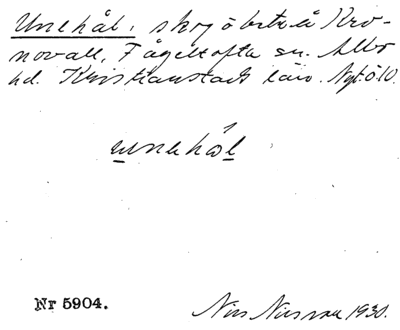 Unehål, skog ö. betr. å Kro-
novall, Fågeltofta sn. Albo
hd. Kristianstads län. Nyt. ö. 10.
unehål
Nr 5904.
Nils Nilsson 1930.